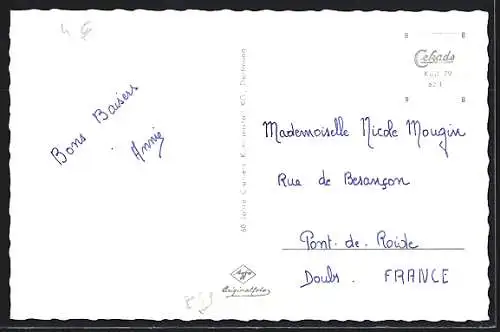 4 €
Cekade
Bons Baisers
Annie
Mademoiselle Nicole Mougin
Rue de Besançon
Pont-de-Roide
Doubs. FRANCE
Agfa
Originalfoto